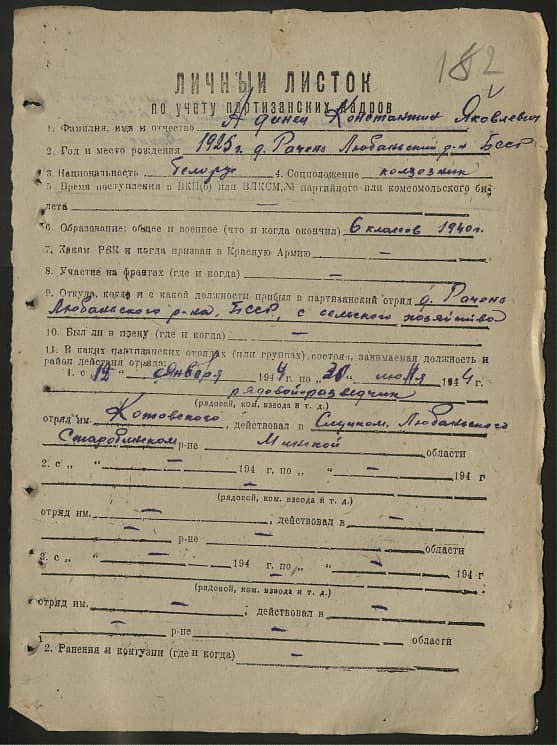 182
ЛИЧНЫЙ ЛИСТОК
по учету партизанских кадров
1. Фамилия, имя и отчество Адинец Константин Яковлевич
2. Год и место рождения 1925 г. д. Рачень Любаньский р-н БССР
3. Национальность белорус 4. Соцположение колхозник
5. Время поступления в ВКП(б) или ВЛКСМ, № партийного или комсомольского би-
лета —
6. Образование: общее и военное (что и когда окончил) 6 классов 1940 г.
7. Каким РВК и когда призван в Красную Армию —
8. Участие на фронтах (где и когда) —
9. Откуда, когда и с какой должности прибыл в партизанский отряд д. Рачень
Любаньского р-на, БССР, с сельского хозяйства
10. Был ли в плену (где и когда) —
11. В каких партизанских отрядах (или группах), состоял, занимаемая должность и
район действия отряда:
1. с „12“ января 1944 г. по „30“ июля 1944 г.
рядовой-разведчик
(рядовой, ком. взвода и т. д.)
отряд им. Котовского, действовал в Слуцком, Любаньского
Старобинском р-не Минской области
2. с „ “ — 194 г. по „ “ — 194 г
(рядовой, ком. взвода и т. д.)
отряд им. —, действовал в —
— р-не — области
3. с „ “ — 194 г. по „ — 194 г
(рядовой, ком. взвода и т. д.)
отряд им. —; действовал в —
— р-не — области
2. Ранения и контузии (где и когда) —